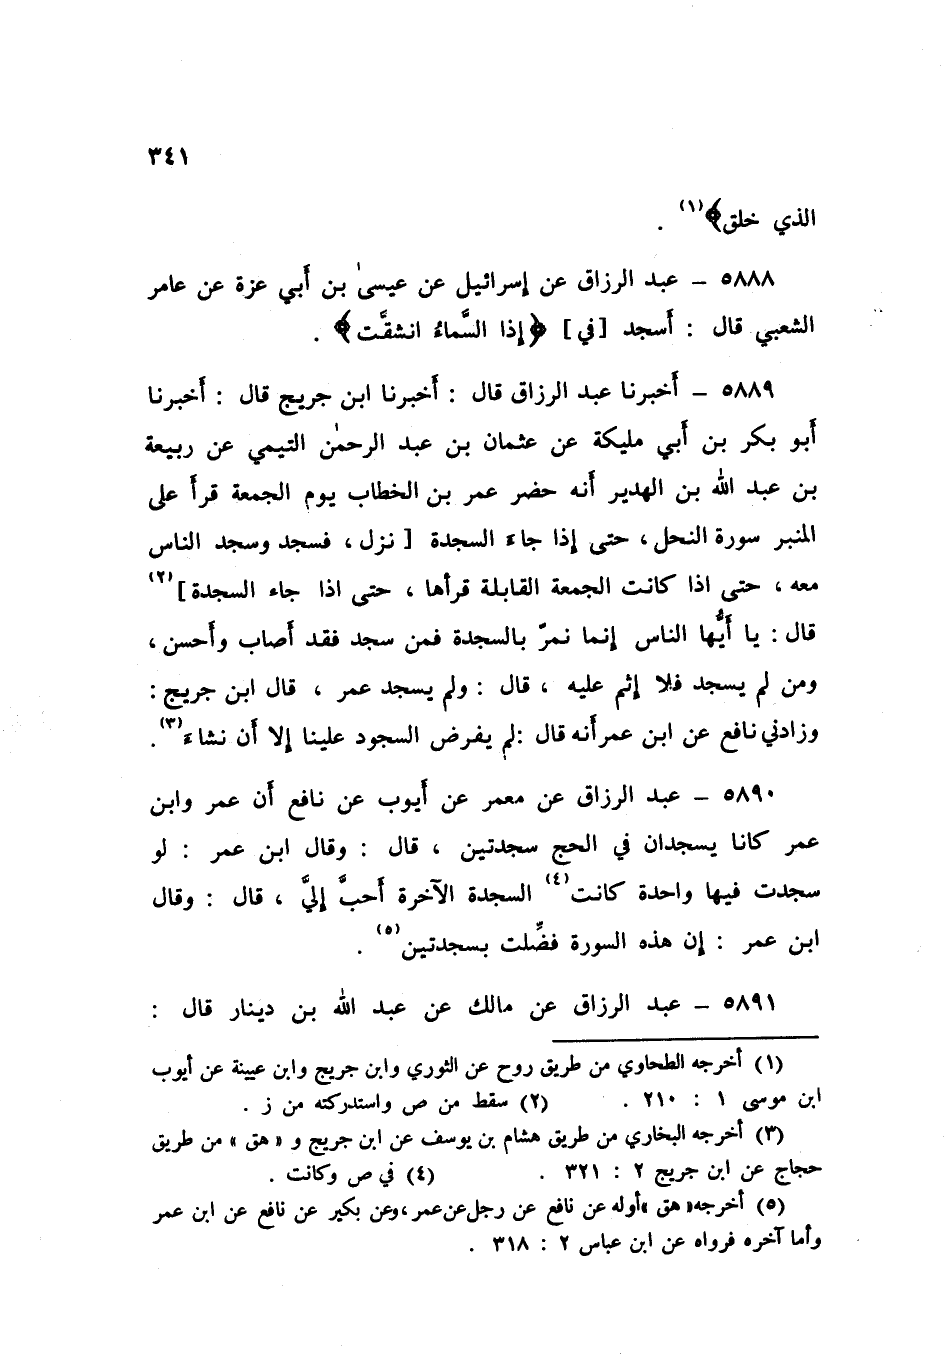 ٣٤١
الذي خلق﴾(١) .
٥٨٨٨ ـ عبد الرزاق عن إسرائيل عن عيسىٰ بن أَبي عزة عن عامر
الشعبي قال : أَسجد [في] ﴿إذا السَّماءُ انشقَّت﴾ .
٥٨٨٩ ـ أَخبرنا عبد الرزاق قال : أَخبرنا ابن جريج قال : أَخبرنا
أَبو بكر بن أَبي مليكة عن عثمان بن عبد الرحمٰن التيمي عن ربيعة
بن عبد الله بن الهدير أَنه حضر عمر بن الخطاب يوم الجمعة قرأَ على
المنبر سورة النحل ، حتى إذا جاءَ السجدة [ نزل ، فسجد وسجد الناس
معه ، حتى اذا كانت الجمعة القابلة قرأها ، حتى اذا جاء السجدة](٢)
قال : يا أَيُّها الناس إنما نمرّ بالسجدة فمن سجد فقد أَصاب وأَحسن ،
ومن لم يسجد فلا إثم عليه ، قال : ولم يسجد عمر ، قال ابن جريج :
وزادني نافع عن ابن عمر أَنه قال : لم يفرض السجود علينا إلا أَن نشاءَ(٣) .
٥٨٩٠ ـ عبد الرزاق عن معمر عن أَيوب عن نافع أَن عمر وابن
عمر كانا يسجدان في الحج سجدتين ، قال : وقال ابن عمر : لو
سجدت فيها واحدة كانت(٤) السجدة الآخرة أَحبَّ إليَّ ، قال : وقال
ابن عمر : إن هذه السورة فضِّلت بسجدتين(٥) .
٥٨٩١ ـ عبد الرزاق عن مالك عن عبد الله بن دينار قال :
(١) أخرجه الطحاوي من طريق روح عن الثوري وابن جريج وابن عيينة عن أيوب
ابن موسى ١ : ٢١٠ . (٢) سقط من ص واستدركته من ز .
(٣) أخرجه البخاري من طريق هشام بن يوسف عن ابن جريج و « هق » من طريق
حجاج عن ابن جريج ٢ : ٣٢١ . (٤) في ص وكانت .
(٥) أخرجه « هق » أوله عن نافع عن رجل عن عمر ، وعن بكير عن نافع عن ابن عمر
وأما آخره فرواه عن ابن عباس ٢ : ٣١٨ .